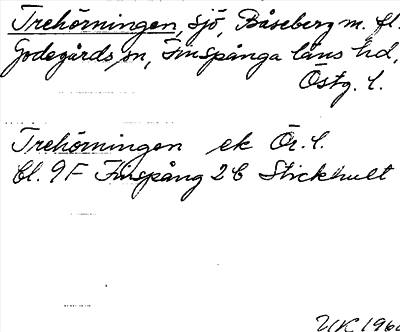 Trehörningen, sjö, Båseberg m. fl.
Godegårds sn, Finspånga läns hd,
Östg. l.
Trehörningen ek Ör. l.
bl. 9F Finspång 2b Stickhult